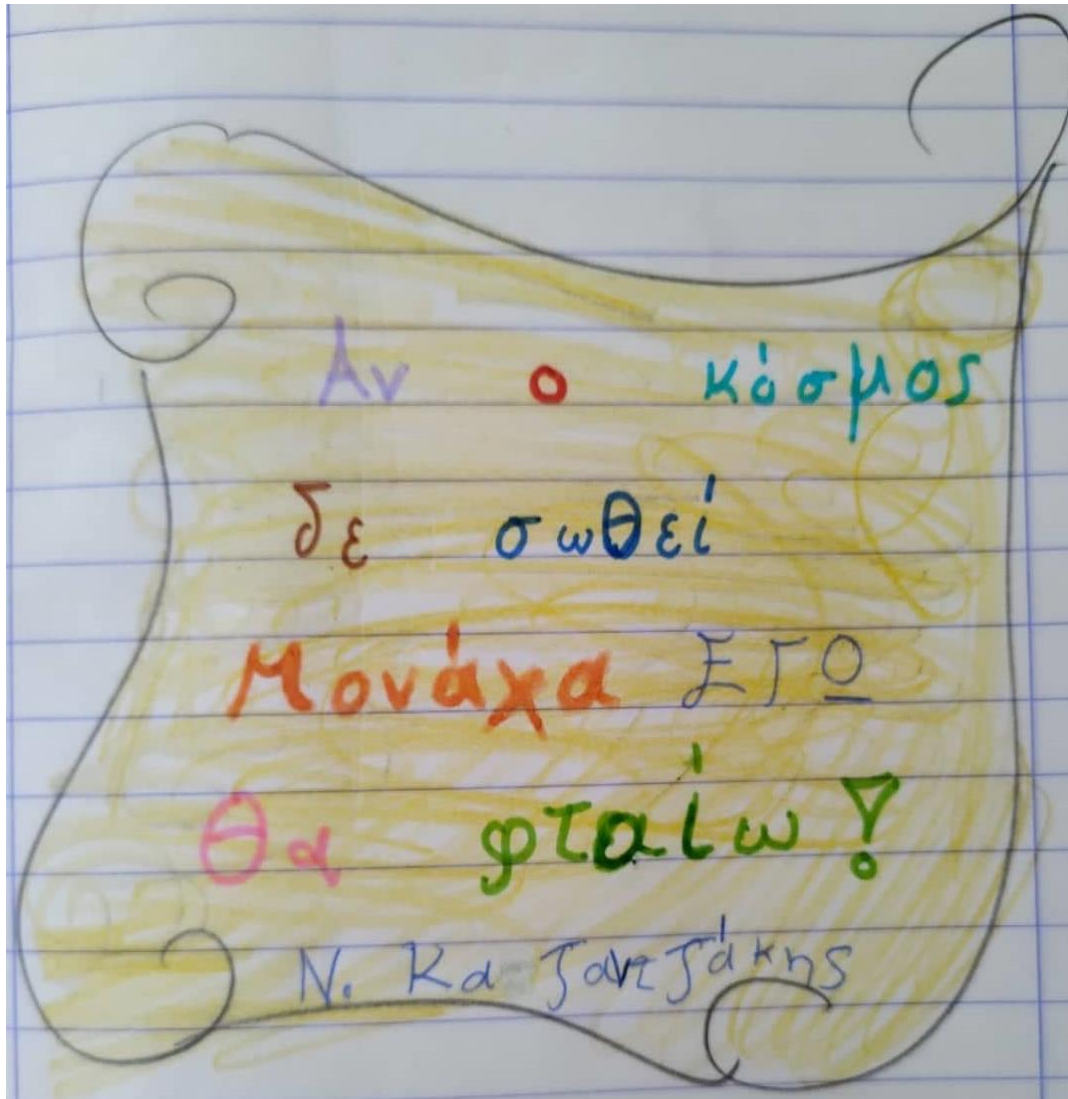 Αν ο κόσμος
δε σωθεί
Μονάχα ΕΓΩ
Θα φταίω!
Ν. Καζαντζάκης